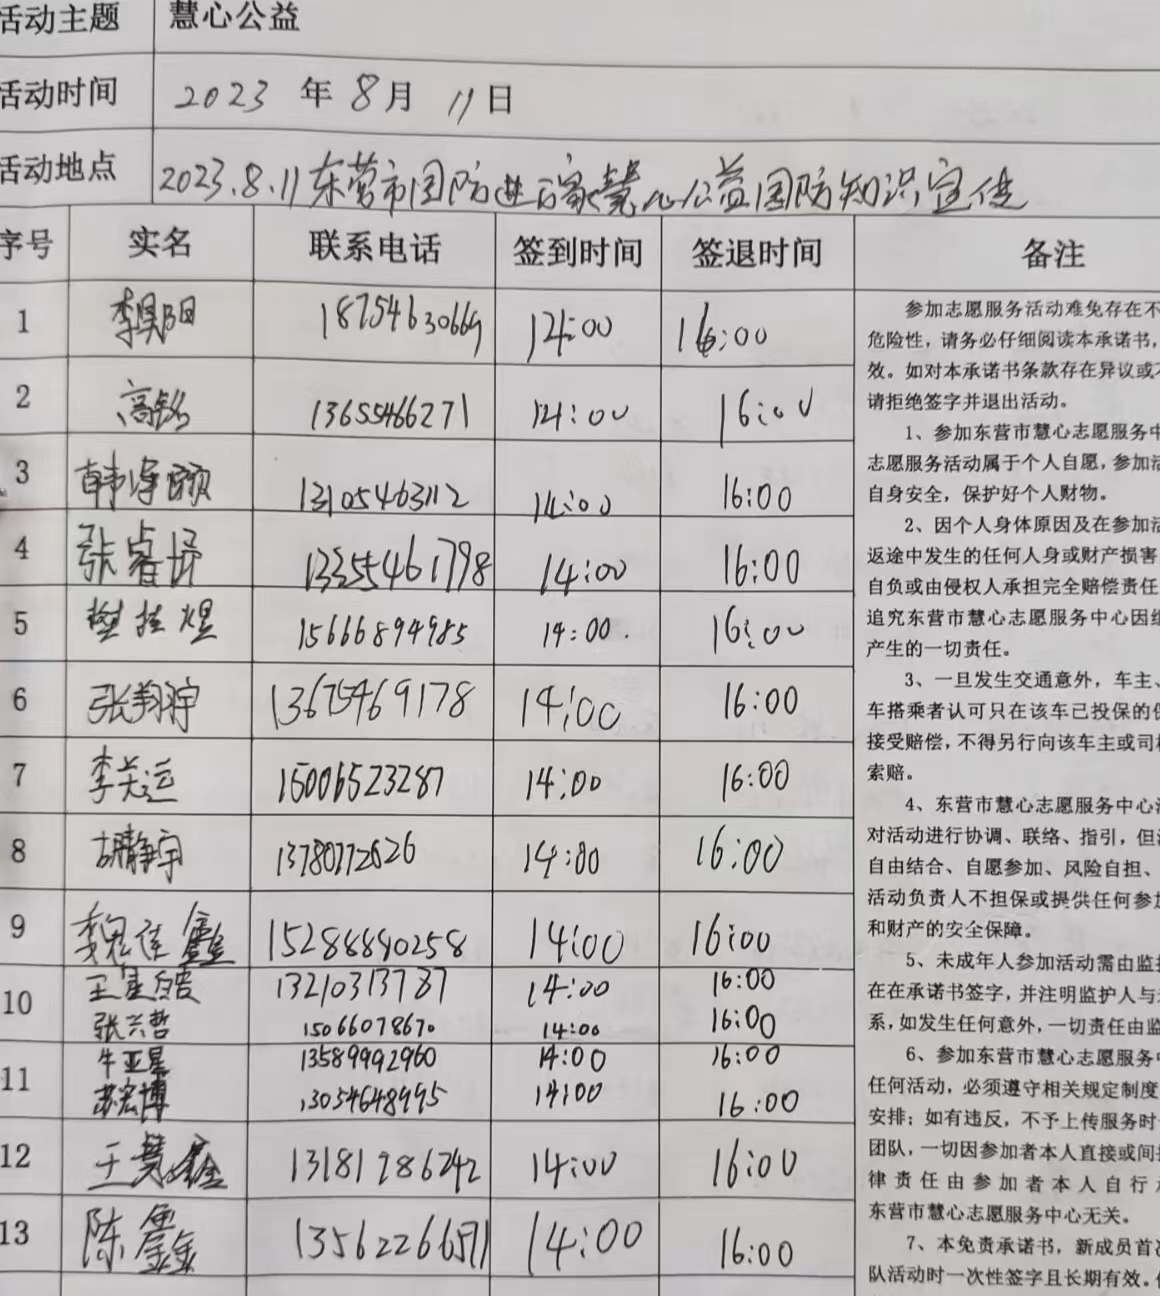 活动主题 慧心公益
活动时间 2023 年 8月 11日
活动地点 2023.8.11东营市国防进万家慧心公益国防知识宣传
序号 实名 联系电话 签到时间 签退时间 备注
1 李昊阳 18754630669 14:00 16:00
2 高铭 13655466271 14:00 16:00
3 韩 13105463112 14:00 16:00
4 张睿 13355461798 14:00 16:00
5 樊 煜 15666894985 14:00. 16:00
6 张翔宇 13675469178 14:00 16:00
7 李关运 15006523287 14:00 16:00
8 胡静宇 13780772626 14:00 16:00
9 魏佳鑫 15288880258 14:00 16:00
10 王 13210313787 14:00 16:00
张兴哲 15066078670 14:00 16:00
11 牛亚星 13589992960 14:00 16:00
苏宏博 13054648995 14:00 16:00
12 王慧鑫 13181986242 14:00 16:00
13 陈鑫 13562266571 14:00 16:00
参加志愿服务活动难免存在不
危险性，请务必仔细阅读本承诺书，
效。如对本承诺书条款存在异议或不
请拒绝签字并退出活动。
1、参加东营市慧心志愿服务中
志愿服务活动属于个人自愿，参加活
自身安全，保护好个人财物。
2、因个人身体原因及在参加活
返途中发生的任何人身或财产损害
自负或由侵权人承担完全赔偿责任
追究东营市慧心志愿服务中心因组
产生的一切责任。
3、一旦发生交通意外，车主、
车搭乘者认可只在该车已投保的保
接受赔偿，不得另行向该车主或司机
索赔。
4、东营市慧心志愿服务中心活
对活动进行协调、联络、指引，但活
自由结合、自愿参加、风险自担、
活动负责人不担保或提供任何参加
和财产的安全保障。
5、未成年人参加活动需由监护
在在承诺书签字，并注明监护人与未
系，如发生任何意外，一切责任由监
6、参加东营市慧心志愿服务中
任何活动，必须遵守相关规定制度
安排；如有违反，不予上传服务时
团队，一切因参加者本人直接或间接
律责任由参加者本人自行承
东营市慧心志愿服务中心无关。
7、本免责承诺书，新成员首次
队活动时一次性签字且长期有效。